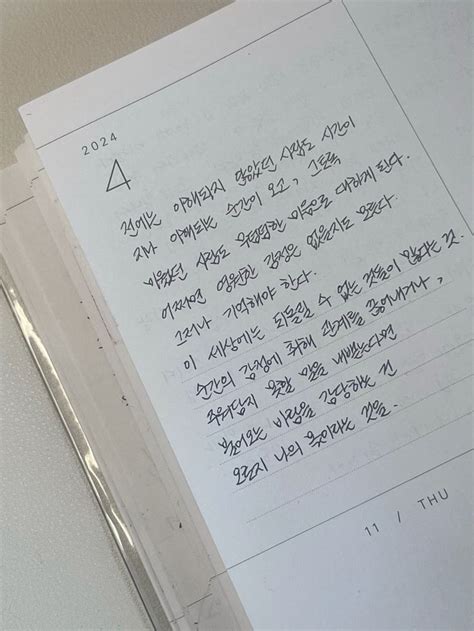 2024
4
전에는 이해되지 않았던 사람도 시간이
지나 이해되는 순간이 오고, 그토록
미워했던 사람도 무덤덤한 마음으로 대하게 된다.
어쩌면 영원한 감정은 없을지도 모른다.
그러나 기억해야 한다.
이 세상에는 되돌릴 수 없는 것들이 있다는 것.
순간의 감정에 취해 관계를 끊어내거나,
주워담지 못할 말을 내뱉는다면
불어오는 바람을 감당하는 건
오롯이 나의 몫이라는 것을.
11 / THU